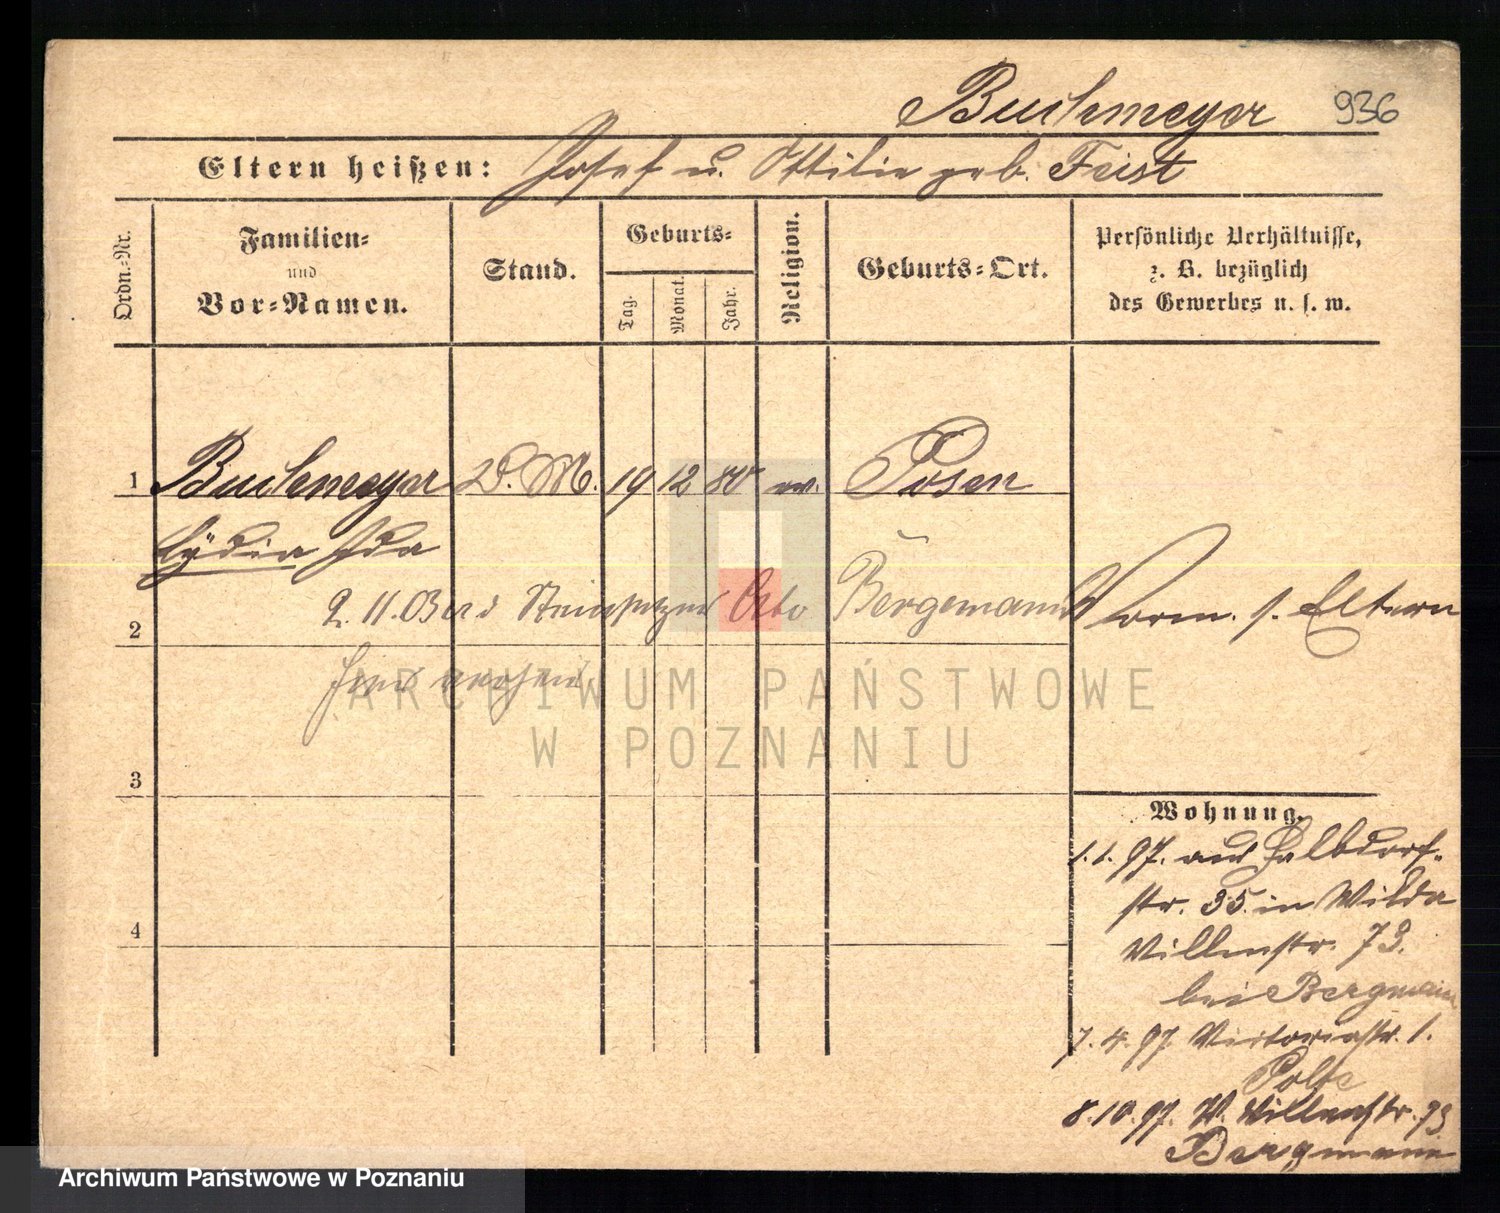 Buchmeyer 936
Eltern heißen: Josef u. Ottilie geb. Feist
Ordn.-Nr.
Familien-
und
Vor-Namen.
Stand.
Geburts-
Tag.
Monat.
Jahr.
Religion.
Geburts-Ort.
Persönliche Verhältnisse,
z. B. bezüglich
des Gewerbes u. s. w.
1 Buchmeyer D. M. 19 12 80 ev. Posen
Lydia Ida
2. 11. 03 Steinsetzer Otto Bergemann
2
Vorm. s. Eltern
hier
ARCHIWUM PAŃSTWOWE
W POZNANIU
3
4
Wohnung.
1. 1. 97. aus Halbdorf-
str. 35. in Wilda
Villenstr. 73.
bei Bergmann
7. 4. 97. Victoriastr. 1.
8. 10. 97. W. Villenstr. 73
Bergmann
Archiwum Państwowe w Poznaniu